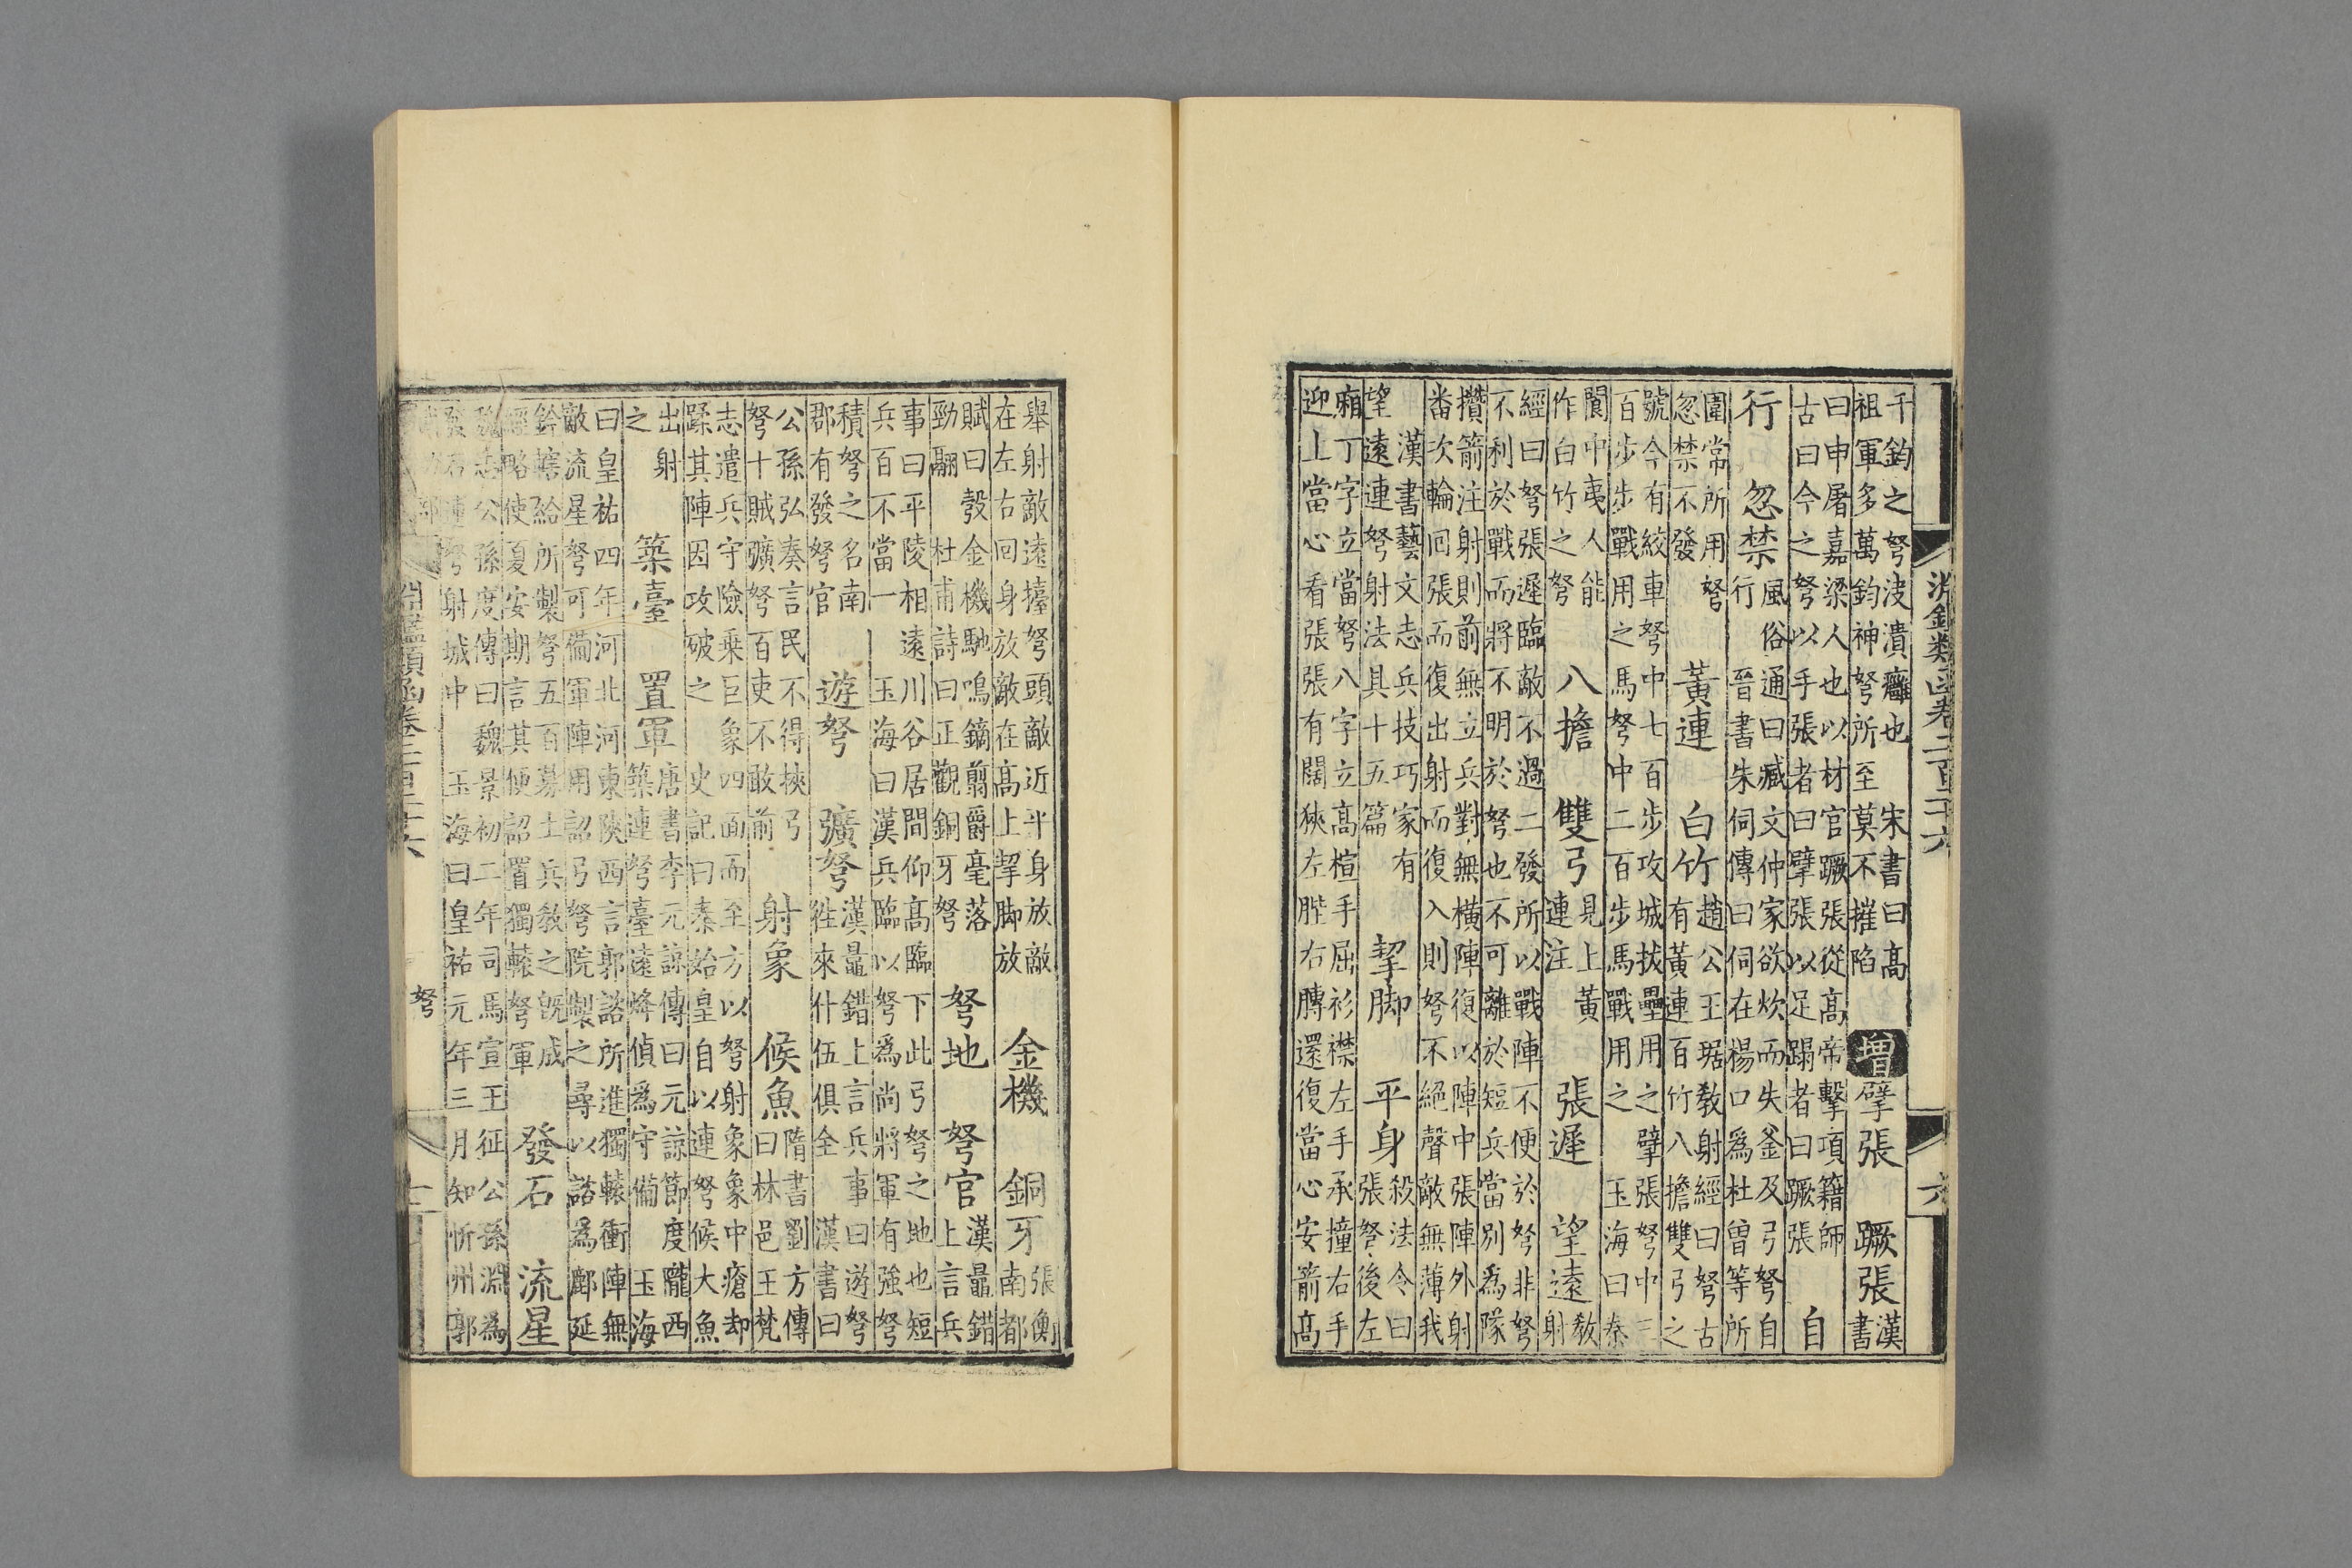 淵鑑類函卷二百二十六 六
千鈞之弩波潰癰也 宋書曰高
祖軍多萬鈞神弩所至莫不摧陷
增 擘張 蹶張 漢書
曰申屠嘉梁人也以材官蹶張從高帝擊項籍師
古曰今之弩以手張者曰擘張以足蹋者曰蹶張
自
行 忽禁
風俗通曰臧文仲家欲炊而失釜及弓弩自
行 晉書朱伺傳曰伺在楊口為杜曾等所
圍常所用弩
忽禁不發
黃連 白竹
趙公王琚教射經曰弩古
有黃連百竹八擔雙弓之
號今有絞車弩中七百步攻城拔壘用之擘張弩中三
百步步戰用之馬弩中二百步馬戰用之 玉海曰秦
閬中夷人能
作白竹之弩
八擔 雙弓
見上黃
連注
張遲 望遠
教
射
經曰弩張遲臨敵不過二發所以戰陣不便於弩非弩
不利於戰而將不明於弩也不可離於短兵當別為隊
攢箭注射則前無立兵對無橫陣復以陣中張陣外射
番次輪回張而復出射而復入則弩不絕聲敵無薄我
漢書藝文志兵技巧家有
望遠連弩射法具十五篇
挈脚 平身
殺法令曰
張弩後左
廂丁字立當弩八字立高楦手屈衫襟左手承撞右手
迎上當心看張張有闊狹左䏶右膊還復當心安箭高
舉射敵遠擡弩頭敵近平身放敵
在左右回身放敵在高上挈脚放
金機 銅牙
張衡
南都
賦曰 彀金機馳鳴鏑翦爵毫落
勁翮 杜甫詩曰正觀銅牙弩
弩地 弩官
漢鼂錯
上言兵
事曰平陵相遠川谷居間仰高臨下此弓弩之地也短
兵百不當一 玉海曰漢兵臨以弩為尚將軍有強弩
積弩之名南
郡有發弩官
遊弩 彍弩
漢鼂錯上言兵事曰遊弩
徃來什伍俱全 漢書曰
公孫弘奏言民不得挾弓
弩十賊彍弩百吏不敢前
射象 候魚
隋書劉方傳
曰林邑王梵
志遣兵守險乗巨象四面而至方以弩射象象中瘡却
蹂其陣因攻破之 史記曰秦始皇自以連弩候大魚
出射
之
築臺 置軍
唐書李元諒傳曰元諒節度隴西
築連弩臺遠烽偵為守備 玉海
曰皇祐四年河北河東陝西言郭諮所進獨轅衝陣無
敵流星弩可備軍陣用詔弓弩院製之尋以諮為鄜延
鈐轄給所製弩五百募土兵教之既成
經略使夏安期言其便詔置獨轅弩軍
發石 流星
魏志公孫度傳曰魏景初二年司馬宣王征公孫淵為
發石連弩射城中 玉海曰皇祐元年三月知忻州郭
淵鑑類函卷二百二十六 弩